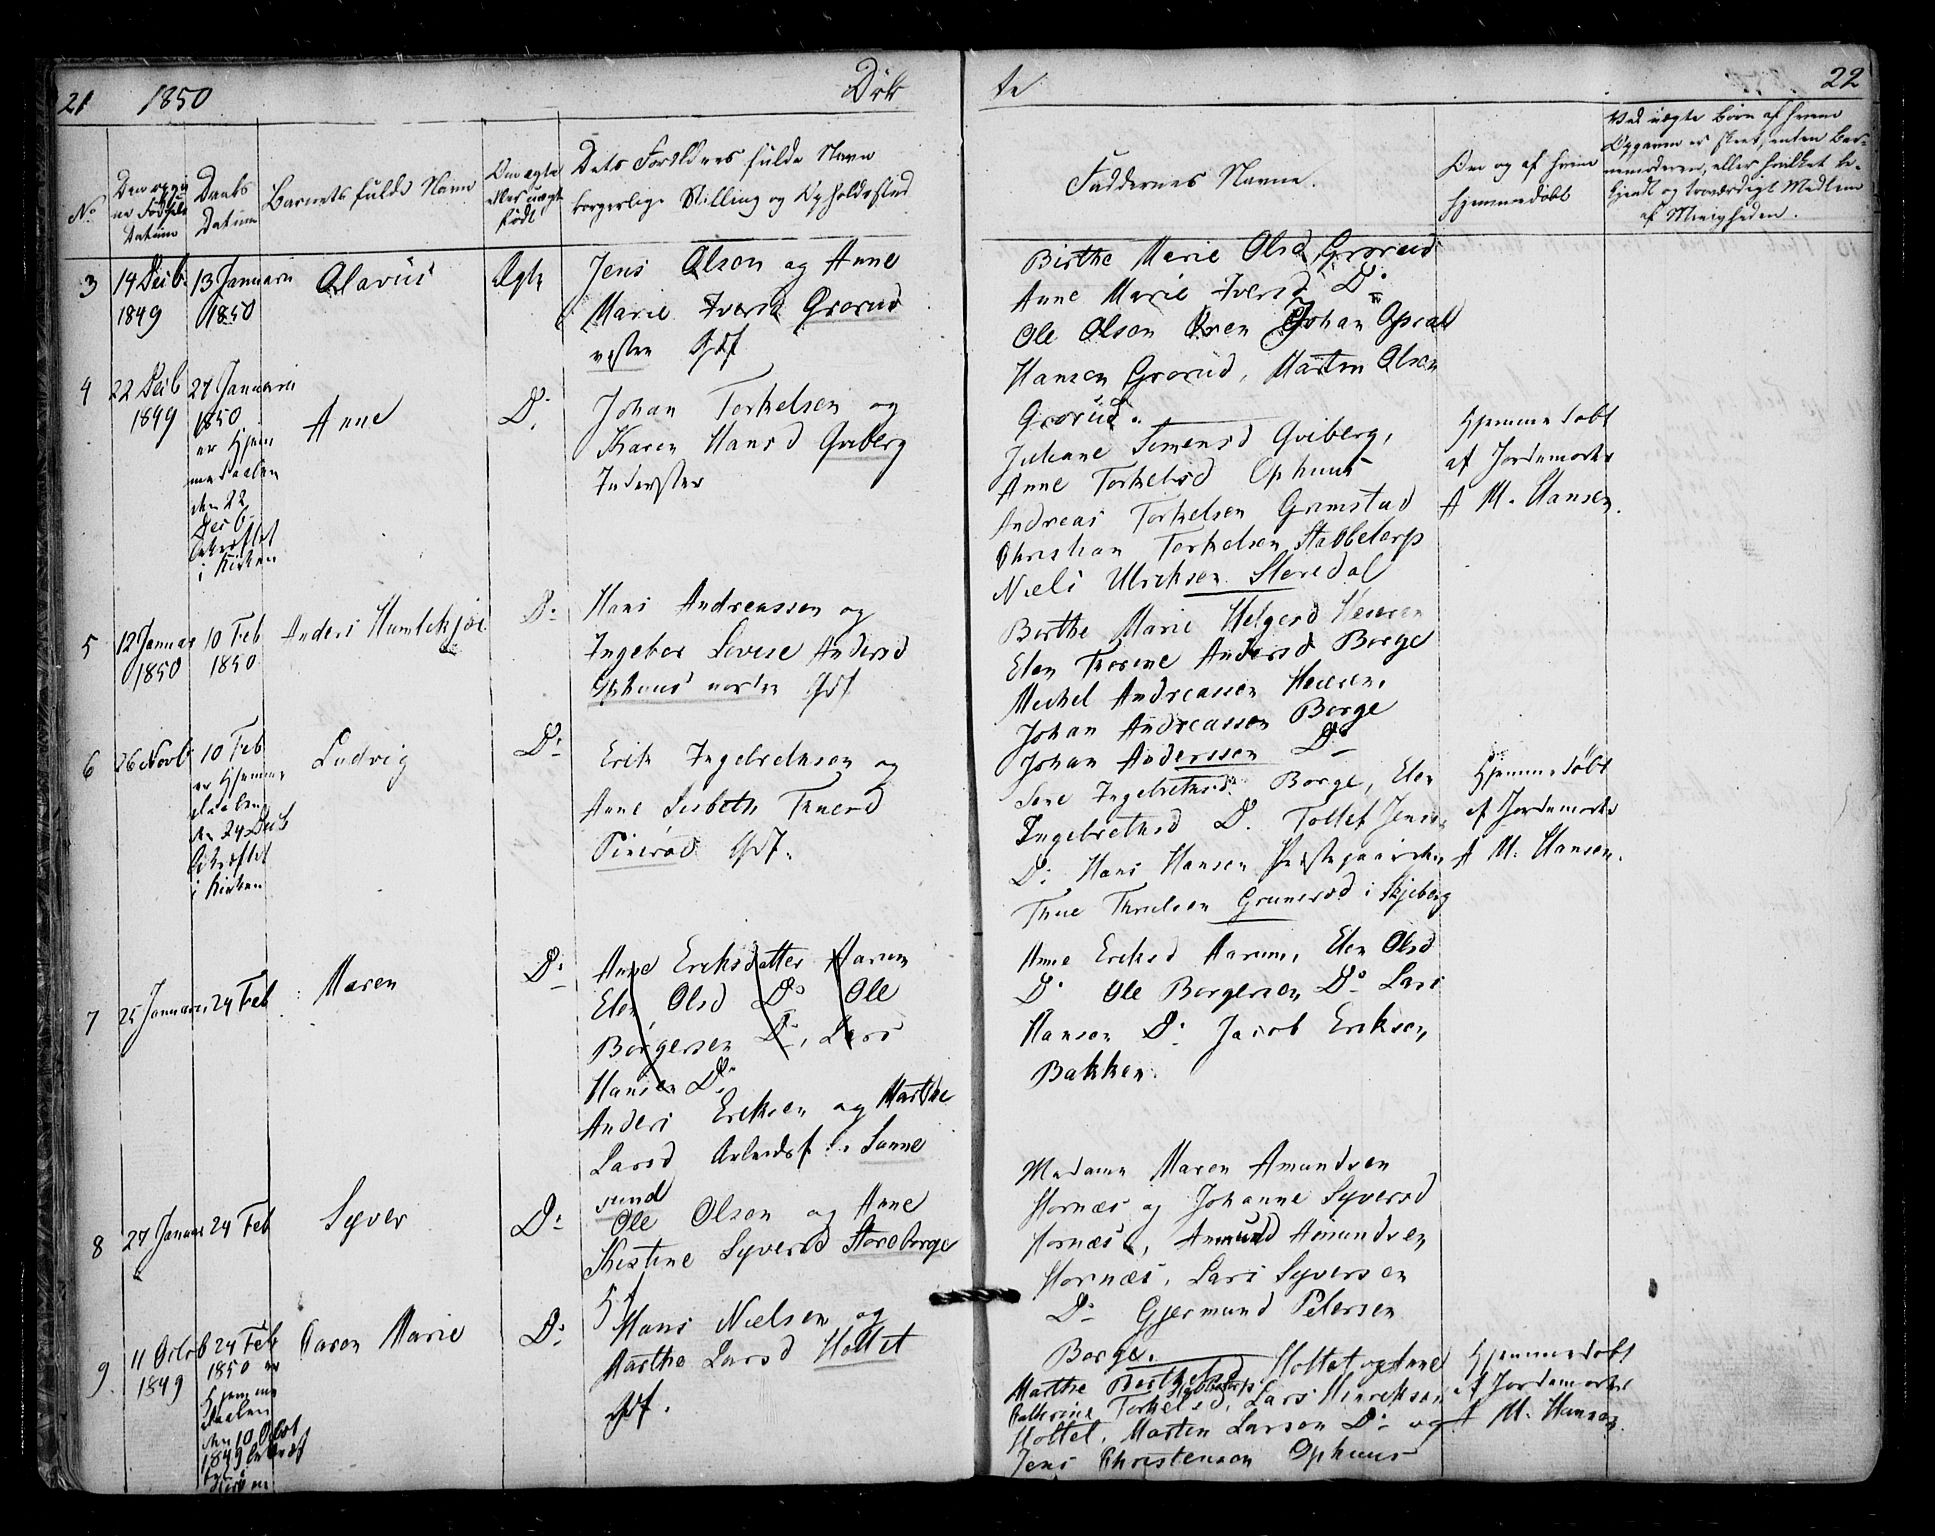 21 1850 Døb
te 22
No
Datum
Daabs
Datum
Barnets fulde Navn
Om ægte
eller uægte
født
Dets Forældres fulde Navn
borgerlige Stilling og Opholdssted
Faddernes Navne.
Om og af hvem
hjemmedøbt
Ved uægte Børn af hvem
Opgaven er skeet, enten Bar-
nemoderen, eller hvilket be-
kjendt og troværdigt Medlem
af Menigheden.
3 14 Decb. 1849
13 Januarii 1850
Olavus
Ægte
Jens Olsen og Anne
Marie Iversd Grorud
vestre Gdf
Birthe Marie Olsd Grorud
Anne Marie Iversd Do
Ole Olsen Johan
Hansen Grorud, Martin Olsen
Grorud.
4 22 Decb 1849
27 Januarii
1850
er Hjem
medaaben
den 22
Decb
bekræftet
i Kirken
Anne
Do
Johan Torkelsen og
Karen Hansd Qviberg
Inderster
Juliane Simensd Qviberg,
Anne Torkelsd Ophuus
Andreas Torkelsen Grimstad
Christian Torkelsen Stabbetorp
Niels Ulriksen Storedal
Hjemmedøbt
af Jordemoder
A M. Hansen.
5 12 Januar 1850
10 Feb 1850
Anders Humlekjær
Do
Hans Andreassen og
Ingebor Lovise Andersd
Ophuus nordre Gdf
Berthe Marie Helgesd
Elen Thorine Andersd Borge
Mickel Andreassen
Johan Andreassen Borge
Johan Anderssen Do
6 26 Novb
10 Feb
er Hjemme
daaben
den 24 Decb
bekræftet
i Kirken
Ludvig
Do
Erik Ingebrethsen og
Anne Lisbeth Thuesd
Gdf.
Lene Ingebrethsd. Borge, Elen
Ingebrethsd Do. Tollef Jensen
Do. Hans Hansen Præstegaarden
Thue Thruelsen i Skjeberg
Hjemmedøbt
af Jordemoder
A M. Hansen.
7 25 Januar 24 Feb
Maren
Do
Anne Eriksdatter Aarum
Elen Olsd Do Ole
Borgersen Do, Lars
Hansen Do
Anders Eriksen og Marthe
Larsd Arbeidsf. i Sanne
sund
Anne Eriksd Aarum, Elen Olsd
Do Ole Borgersen Do Lars
Hansen Do Jacob Eriksen
Bakken.
8 27 Januar 24 Feb
Syver
Do
Ole Olsen og Anne
Kistine Syversd Storeborge
Madame Maren Amundsen
Hornæs og Johanne Syversd
Hornæs, Amund Amundsen
Hornæs, Lars Syversen
Do Gjermund Petersen
Borge.
9. 11 Octob 1849
24 Feb
1850 er
Hjemme
daaben
den 10 Octob
1849 bekræf
tet i
Kirken
Caren Marie
Do
Hans Nielsen og
Marthe Larsd Holtet
Gdf.
Marthe Holtet og Anne
Cathrine Torkelsd, Lars Hinriksen
Holtet, Morten Larsen Do og
Jens Christensen Ophuus
Hjemmedøbt
af Jordemoder
A M. Hansen.